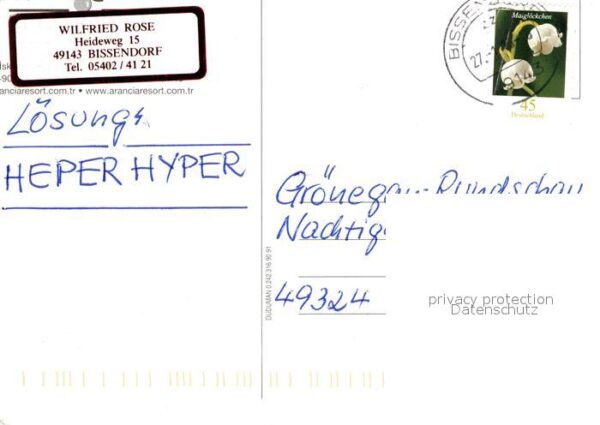 WILFRIED ROSE
Heideweg 15
49143 BISSENDORF
Tel. 05402 / 41 21
aranciaresort.com.tr • www.aranciaresort.com.tr
Lösung:
HEPER HYPER
Maiglöckchen
45
Deutschland
BISSEN
27.
49143
Grönegau-Rundschau
Nachtig
49324
DUDUMAN 0.242.316 90 91
privacy protection
Datenschutz